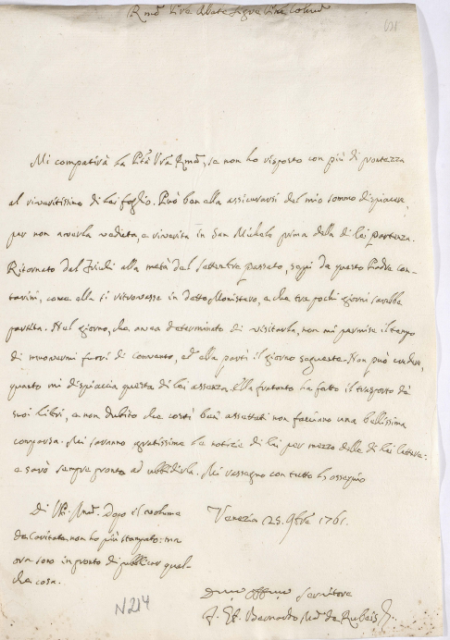 Rmo
Mi compatirà la Ptà Vra Rma, se non ho risposto con più di prontezza
al riveritissimo di lei foglio. Può ben ella assicurarsi del mio sommo dispiacere,
per non averla veduta, e riverita in San Michele prima della di lei partenza.
Ritornato dal Friuli alla metà del settembre passato, seppi da questo Padre Con-
tarini, come ella si ritrovasse in detto Monistero, e che tra pochi giorni sarebbe
partita. Nel giorno, che avea determinato di visitarla, non mi permise il tempo
di muovermi fuori di convento, ed ella partì il giorno seguente. Non può credere,
quanto mi dispiaccia questa di lei assenza. Ella frattanto ha fatto il trasporto de'
suoi libri, e non dubito che costì ben assettati non facciano una bellissima
comparsa. Mi saranno gratissime le notizie di lei per mezzo delle di lei lettere:
e sarò sempre pronto ad ubbidirla. Mi rassegno con tutto l'ossequio
Di V. P. Rma. Dopo il volume
non ho più stampato: ma
ora sono in pronto di publicar qual-
che cosa.
Venezia 25. 9bre 1761.
Servitore
F. Gf. Bernardo Ma de Rubeis
N214